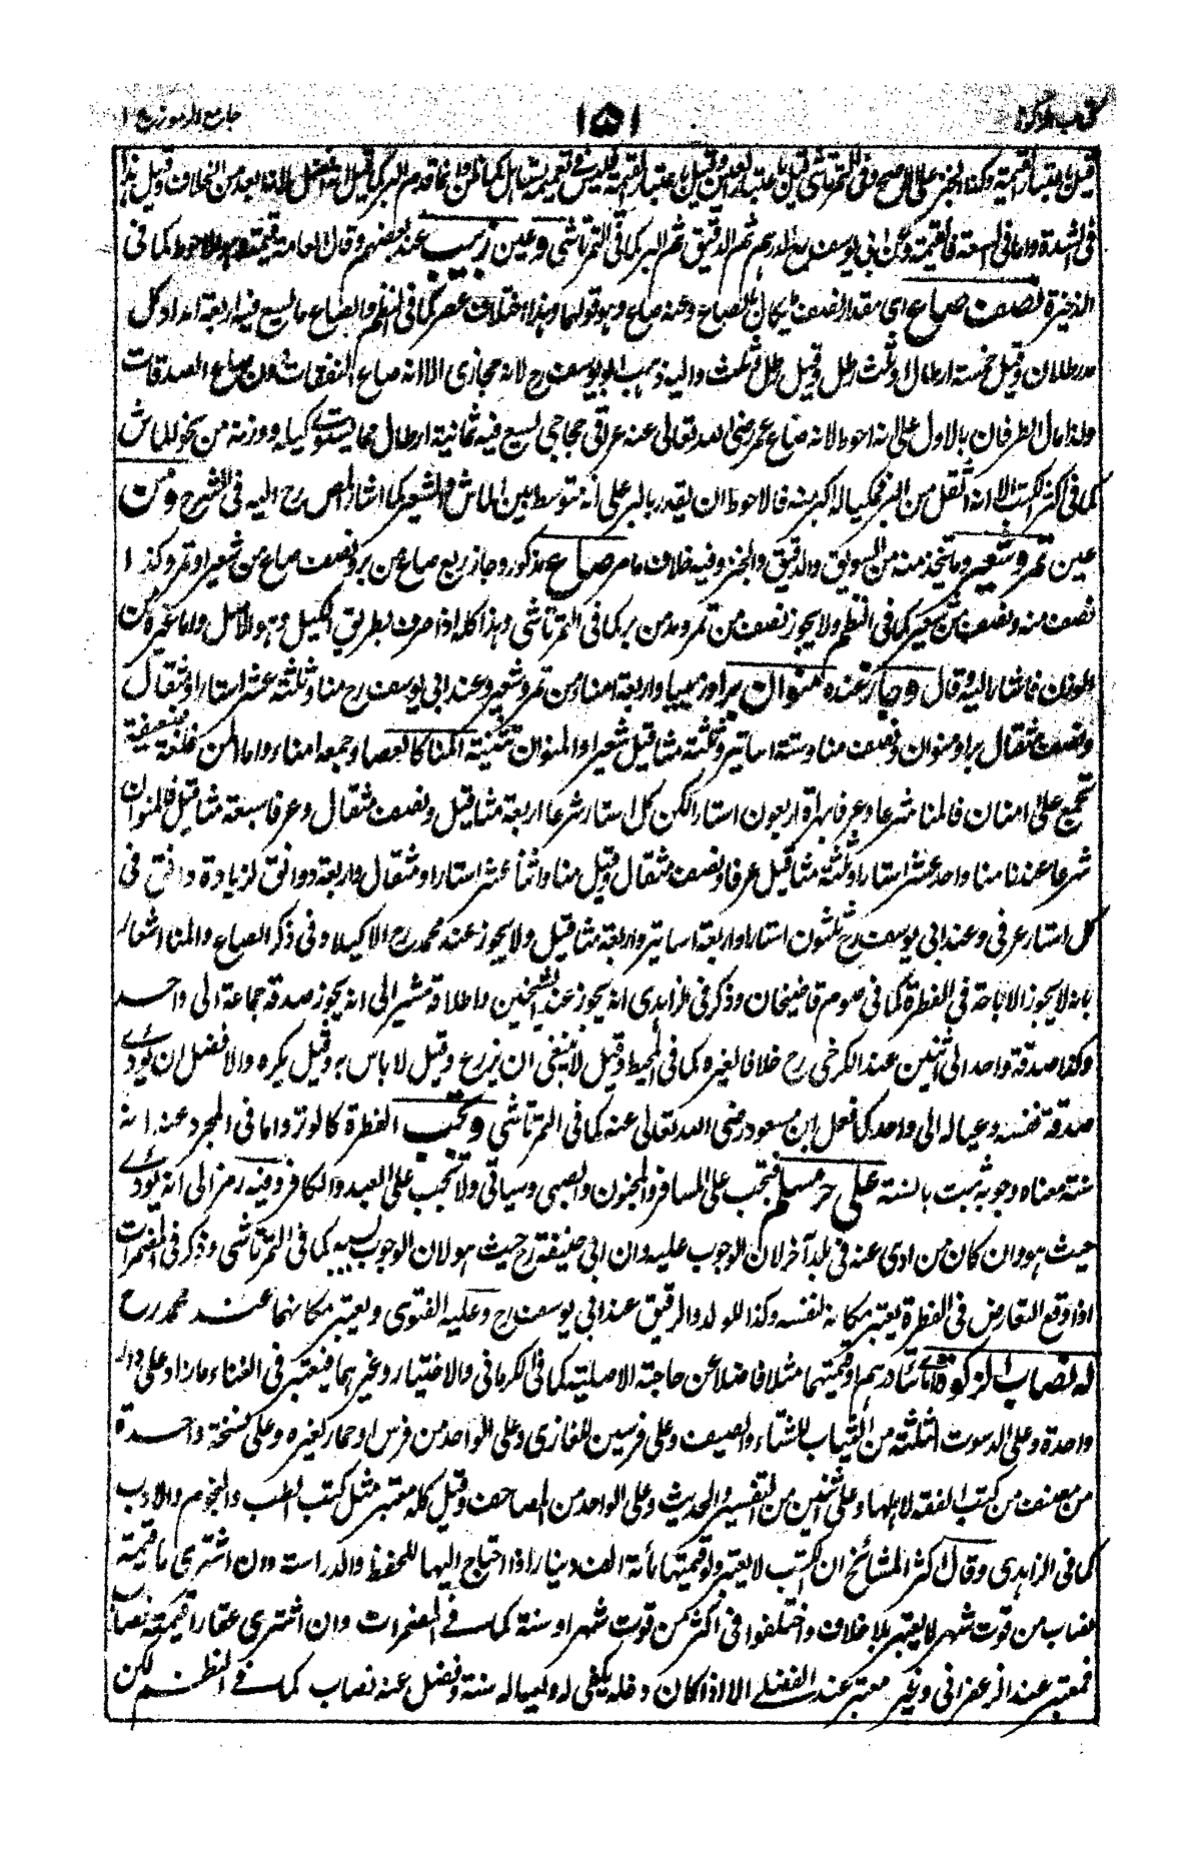 كتاب الزكوة ١٥١ جامع الرموز ج ١
قيل باعتبار القيمة وكذا الخبز على الاصح وفى التمرتاشى قيل باعتبار العين وقيل باعتبار القيمة وانما قدم البر كما قيل لانه افضل لانه ابعد من الخلاف وقيل هذا
فى الشدة واما فى السعة فالقيمة وعن ابى يوسف رح الدرهم ثم الدقيق ثم البر كما فى التمرتاشى وعين زبيب عند بعضهم وقال العامة قيمته وهو الاحوط كما فى
الذخيرة نصف صاع اى مقدار نصف ما يكال بالصاع وعنه صاع وهو قولهما وهذا اختلاف عصر كما فى النظم والصاع ما يسع فيه اربعة امداد كل
مد رطلان وقيل خمسة ارطال وثلث رطل وقيل رطل وثلث واليه ذهب ابو يوسف رح لانه حجازى الا انه صاع النفقات دون صاع الصدقات
ولذا مال الطرفان بالاول على انه احوط لانه صاع عمر رضى الله تعالى عنه عراقى حجاجى يسع فيه ثمانية ارطال مما يستوى كيله ووزنه من نحو الماش
كما فى اكثر الكتب الا انه اثقل من البر فمكياله اكبر منه فالاحوط ان يقدر بالبر على انه متوسط بين الماش والشعير كما اشار المص رح اليه فى الشرح ومن
عين تمر وشعير وما يتخذ منه من السويق والدقيق والخبز وفيه خلاف ما مر صاع مذكور وجاز ربع صاع من بر ونصف صاع من شعير او تمر وكذا
نصف منه ونصف من شعير كما فى النظم ولا يجوز نصف من تمر ومد من بر كما فى التمرتاشى وهذا كله اذا صرف بطريق الكيل وهو الاصل واما غيره من
الوزن فاشار اليه وقال وجاز عنده منوان برا وزبيبا واربعة امنا من تمر وشعير وعند ابى يوسف رح منا وثلثة عشر استارا ومثقال
ونصف مثقال برا ومنوان ونصف منا وستة اساتير وثلثة مثاقيل شعيرا والمنوان تثنية المنا كالعصا وجمعه امناء واما المن فلغة ضعيفة
تجمع على امنان فالمنا شرعا وعرفا بهراة اربعون استارا لكن كل ستار شرعا اربعة مثاقيل ونصف مثقال وعرفا سبعة مثاقيل فالمنوان
شرعا عندنا منا واحد عشر استارا وثلثة مثاقيل عرفا ونصف مثقال وقيل منا واثنا عشر استارا ومثقال واربعة دوانق لزيادة دانق فى
كل استار عرفى وعند ابى يوسف رح ثلثون استارا واربعة اساتير واربعة مثاقيل ولا يجوز عند محمد رح الا كيلا وفى ذكر الصاع والمنا اشعار
بانه لا يجوز الاباحة فى الفطرة كما فى صوم قاضيخان وذكر فى الزاهدى انه يجوز عند الشيخين واطلاقه مشير الى انه يجوز صدقة جماعة الى واحد
وكذا صدقة واحد الى اثنين عند الكرخى رح خلافا لغيره كما فى المحيط وقيل لا ينبغى ان يزرع وقيل لا باس به وقيل يكره والافضل ان يودى
صدقة نفسه وعياله الى واحد كما فعل ابن مسعود رضى الله تعالى عنه كما فى التمرتاشى وتجب الفطرة كالوتر واما فى المجرد عنه انه
سنة معناه وجوبه ثبت بالسنة على حر مسلم فتجب على المسافر والمجنون والصبى وسياتى ولا تجب على العبد والكافر وفيه رمز الى انه يودى
حيث هو وان كان من ادى عنه فى بلد آخر لان الوجوب عليه وان ابى حنيفة رح حيث هو لان الوجوب بسببه كما فى التمرتاشى وذكر فى المضمرات
اذا وقع التعارض فى الفطرة يعتبر مكانه لنفسه وكذا للولد والرقيق عند ابى يوسف رح وعليه الفتوى ويعتبر مكانهما عند محمد رح
له نصاب الزكوة اى مائتا درهم او قيمتهما مثلا فاضلا عن حاجته الاصلية كما فى الكرمانى والاختيار وغيرهما فيعتبر فى الغناء ما زاد على دار
واحدة وعلى الدسوت الثلثة من الثياب للشتاء والصيف وعلى فرسين للغازى وعلى الواحد من فرس او حمار لغيره وعلى نسخة واحدة
من مصنف من كتب الفقه لاهلها وعلى اثنين من التفسير والحديث وعلى الواحد من المصاحف وقيل كله معتبر مثل كتب الطب والنجوم والادب
كما فى الزاهدى وقال اكثر المشائخ ان الكتب لا يعتبر ولو قيمتها مائة الف دينار اذا احتاج اليها للحفظ والدراسة وان اشترى ما قيمته
نصاب من قوت شهر لا يعتبر بلا خلاف واختلفوا فى اكثر من قوت شهر او سنة كما فى المضمرات وان اشترى عقارا قيمته نصاب
فمعتبر عند الزعفرانى وغير معتبر عند الفضلى الا اذا كان دخله يكفى له ولعياله سنة وفضل عنه نصاب كما فى النظم لكن